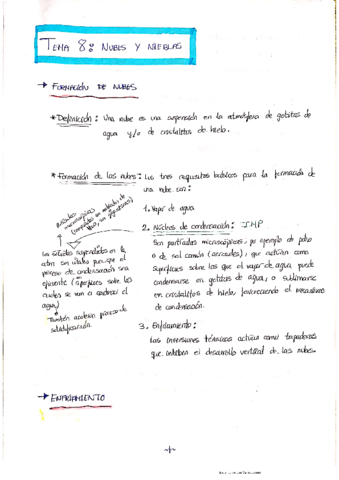 TEMA 8: NUBES Y NIEBLAS
→ FORMACIÓN DE NUBES
* Definición: Una nube es una suspensión en la atmósfera de gotitas de
agua y/o de cristalitos de hielo.
* Formación de las nubes: Los tres requisitos básicos para la formación de
una nube son:
1. Vapor de agua
2. Núcleos de condensación: IMP
Son partículas microscópicas, por ejemplo de polvo
o de sal común (aerosoles), que actúan como
superficies sobre las que el vapor de agua puede
condensarse en gotitas de agua, o sublimarse
en cristalitos de hielo, favoreciendo el mecanismo
de condensación.
3. Enfriamiento:
Las inversiones térmicas actúan como tapaderas
que inhiben el desarrollo vertical de las nubes.
Partículas
microscópicas
Los sólidos suspendidos en la
atm son útiles para que el
proceso de condensación sea
eficiente (superficies sobre las
cuales se va a condensar el
agua)
También aceleran proceso de
→ ENFRIAMIENTO
-1-